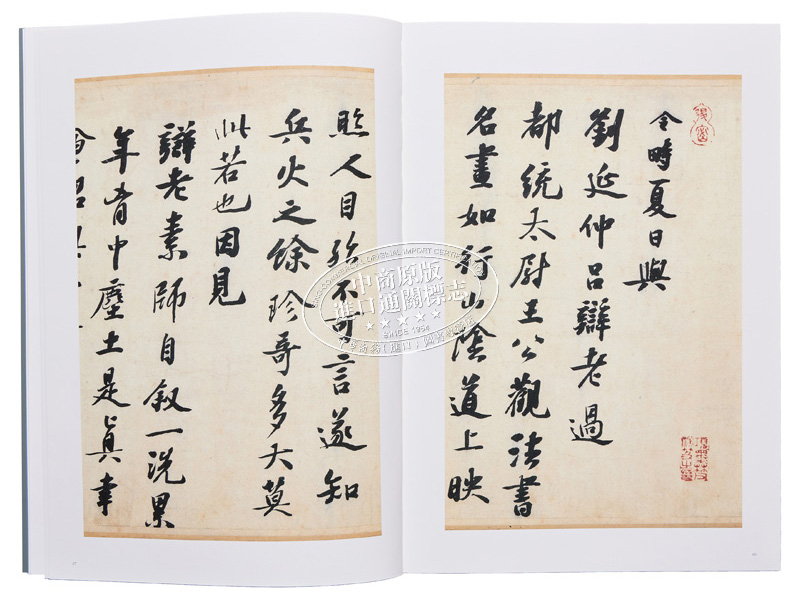 令畤夏日與
劉延仲呂辯老過
都統太尉王公觀法書
名畫如行山陰道上映
照人目殆不可言遂知
兵火之餘珍哥多大莫
此若也因見
辯老素師自叙一洗累
年胷中塵土是真幸
中商原版
進口通關標志
SINCE 1954